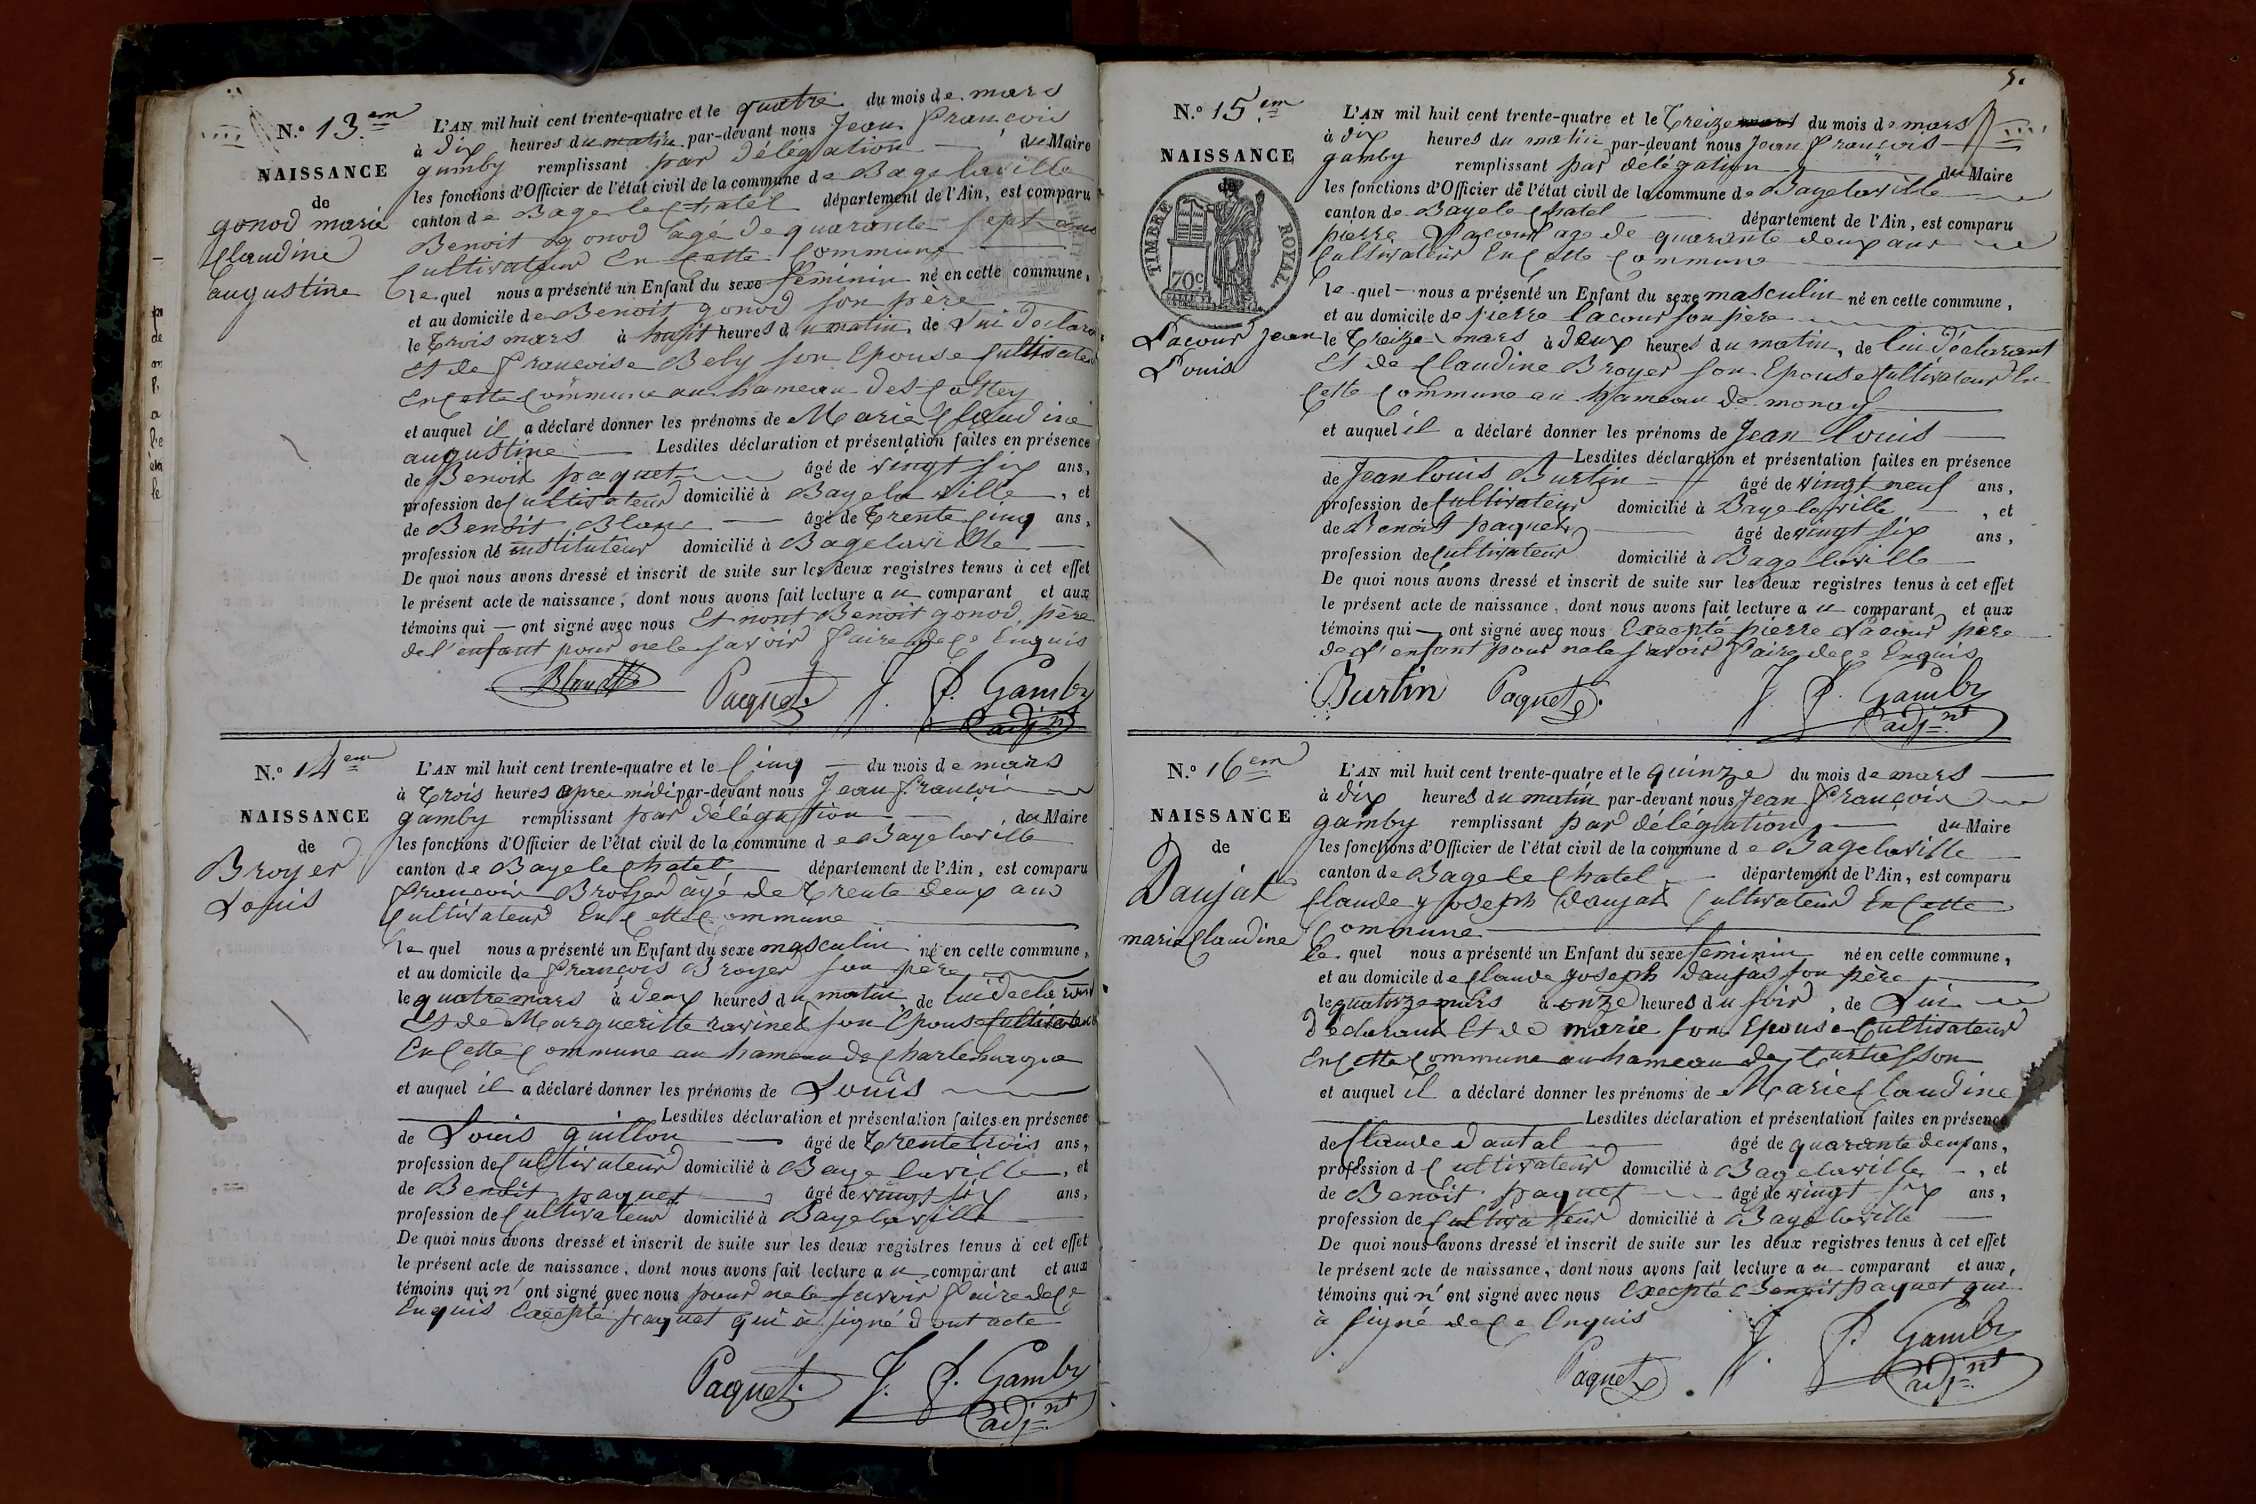 N.° 13.em
NAISSANCE
de
gonod marie
Claudine
augustine
L'AN mil huit cent trente-quatre et le quatre du mois de mars
à dix heures du matin par-devant nous Jean francois
gamby remplissant par délégation du Maire
les fonctions d'Officier de l'état civil de la commune de Bagelaville
canton de Bagelechatel département de l'Ain, est comparu
Benoit gonod âgé de quarante sept ans
Cultivateur En Cette Commune
le quel nous a présenté un Enfant du sexe féminin né en cette commune,
et au domicile de Benoit gonod son père
le trois mars à huit heures du matin, de Lui declarant
Et de francoise Bely son Epouse Cultivateur
En Cette Commune au hameau des
et auquel il a déclaré donner les prénoms de Marie Claudine
augustine Lesdites déclaration et présentation faites en présence
de Benoit paquet âgé de vingt six ans,
profession de Cultivateur domicilié à Bagelaville, et
de Benoit Blanc âgé de trente Cinq ans,
profession de instituteur domicilié à Bagelaville
De quoi nous avons dressé et inscrit de suite sur les deux registres tenus à cet effet
le présent acte de naissance, dont nous avons fait lecture au comparant et aux
témoins qui ont signé avec nous Et nont Benoit gonod père
de l'enfant pour ne le savoir faire de Ce Enquis
Paquet. J. F. Gamby
adj.nt
N.° 14em
NAISSANCE
de
Broyer
Louis
L'AN mil huit cent trente-quatre et le Cinq du mois de mars
à trois heures apre midi par-devant nous Jean francois
gamby remplissant par délégation du Maire
les fonctions d'Officier de l'état civil de la commune de Bagelaville
canton de Bagelechatel département de l'Ain, est comparu
francois Broyer âgé de trente deux ans
Cultivateur En Cette Commune
le quel nous a présenté un Enfant du sexe masculin né en cette commune,
et au domicile de françois Broyer son père
le quatre mars à deux heures du matin, de lui declarant
Et de Margueritte ravinet son Epouse Cultivateur
En Cette Commune au hameau de Charlemargue
et auquel il a déclaré donner les prénoms de Louis
Lesdites déclaration et présentation faites en présence
de Louis guillon âgé de trente trois ans,
profession de Cultivateur domicilié à Bagelaville, et
de Benoit paquet âgé de vingt six ans,
profession de Cultivateur domicilié à Bagelaville
De quoi nous avons dressé et inscrit de suite sur les deux registres tenus à cet effet
le présent acte de naissance, dont nous avons fait lecture au comparant et aux
témoins qui n'ont signé avec nous pour ne le savoir faire de Ce
Enquis Excepté paquet qui à signé dont acte
Paquet. J. F. Gamby
adj.nt
5.
N.° 15em
NAISSANCE
de
TIMBRE ROYAL
70c
Lacour Jean
Louis
L'AN mil huit cent trente-quatre et le treize mars du mois de mars
à dix heures du matin par-devant nous Jean françois
gamby remplissant par délégation du Maire
les fonctions d'Officier de l'état civil de la commune de Bagelaville
canton de Bagelechatel département de l'Ain, est comparu
pierre Lacour age de quarante deux ans
Cultivateur En Cette Commune
le quel nous a présenté un Enfant du sexe masculin né en cette commune,
et au domicile de pierre lacour son pere
le treize mars à deux heures du matin, de lui déclarant
Et de Claudine Broyer son Epouse Cultivateur En
Cette Commune au hameau de monay
et auquel il a déclaré donner les prénoms de Jean Louis
Lesdites déclaration et présentation faites en présence
de Jean louis Burtin âgé de vingt neuf ans,
profession de Cultivateur domicilié à Bagelaville, et
de Benoit paquet âgé de vingt six ans,
profession de Cultivateur domicilié à Bagelaville
De quoi nous avons dressé et inscrit de suite sur les deux registres tenus à cet effet
le présent acte de naissance, dont nous avons fait lecture au comparant et aux
témoins qui ont signé avec nous Excepté pierre Lacour père
de L'enfant pour ne le savoir faire de Ce Enquis
Burtin Paquet. J. F. Gamby
adj.nt
N.° 16em
NAISSANCE
de
Daujat
marie Claudine
L'AN mil huit cent trente-quatre et le quinze du mois de mars
à dix heures du matin par-devant nous Jean François
gamby remplissant par délégation du Maire
les fonctions d'Officier de l'état civil de la commune de Bagelaville
canton de Bagelechatel département de l'Ain, est comparu
Claude Joseph Daujat Cultivateur En Cette
Commune
le quel nous a présenté un Enfant du sexe féminin né en cette commune,
et au domicile de Claude Joseph Daujat son père
le quatorze mars à onze heures du soir, de Lui
déclarant Et de marie son Epouse Cultivateur
En Cette Commune au hameau de Curtasson
et auquel il a déclaré donner les prénoms de Marie Claudine
Lesdites déclaration et présentation faites en présence
de Claude âgé de quarante deux ans,
profession de Cultivateur domicilié à Bagelaville, et
de Benoit paquet âgé de vingt six ans,
profession de Cultivateur domicilié à Bagelaville
De quoi nous avons dressé et inscrit de suite sur les deux registres tenus à cet effet
le présent acte de naissance, dont nous avons fait lecture au comparant et aux
témoins qui n'ont signé avec nous Excepté Benoit paquet qui
à signé de Ce Enquis
Paquet J. F. Gamby
adj.nt